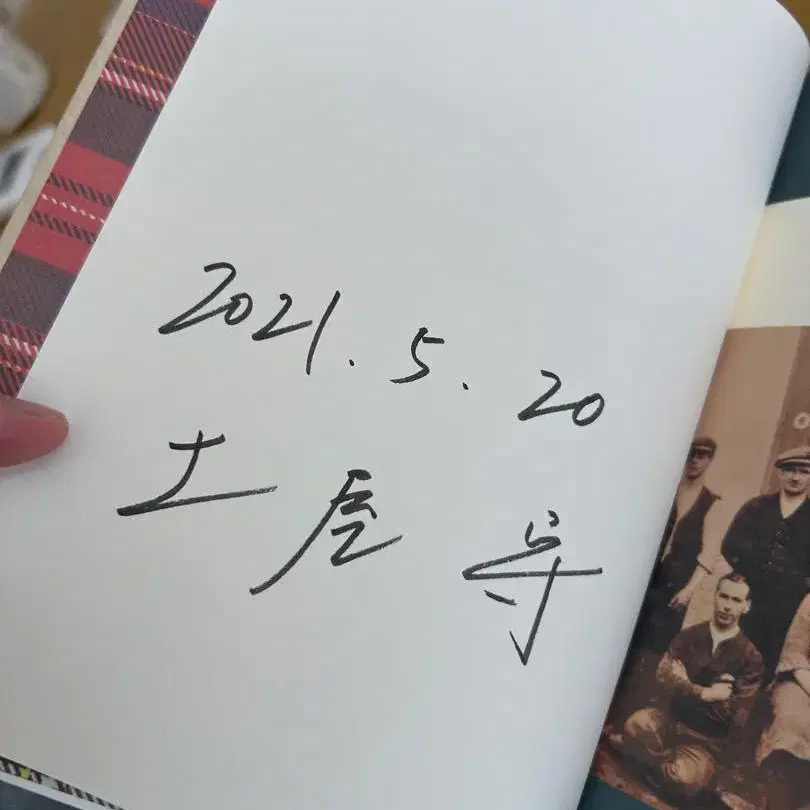 2021. 5. 20
土屋 守